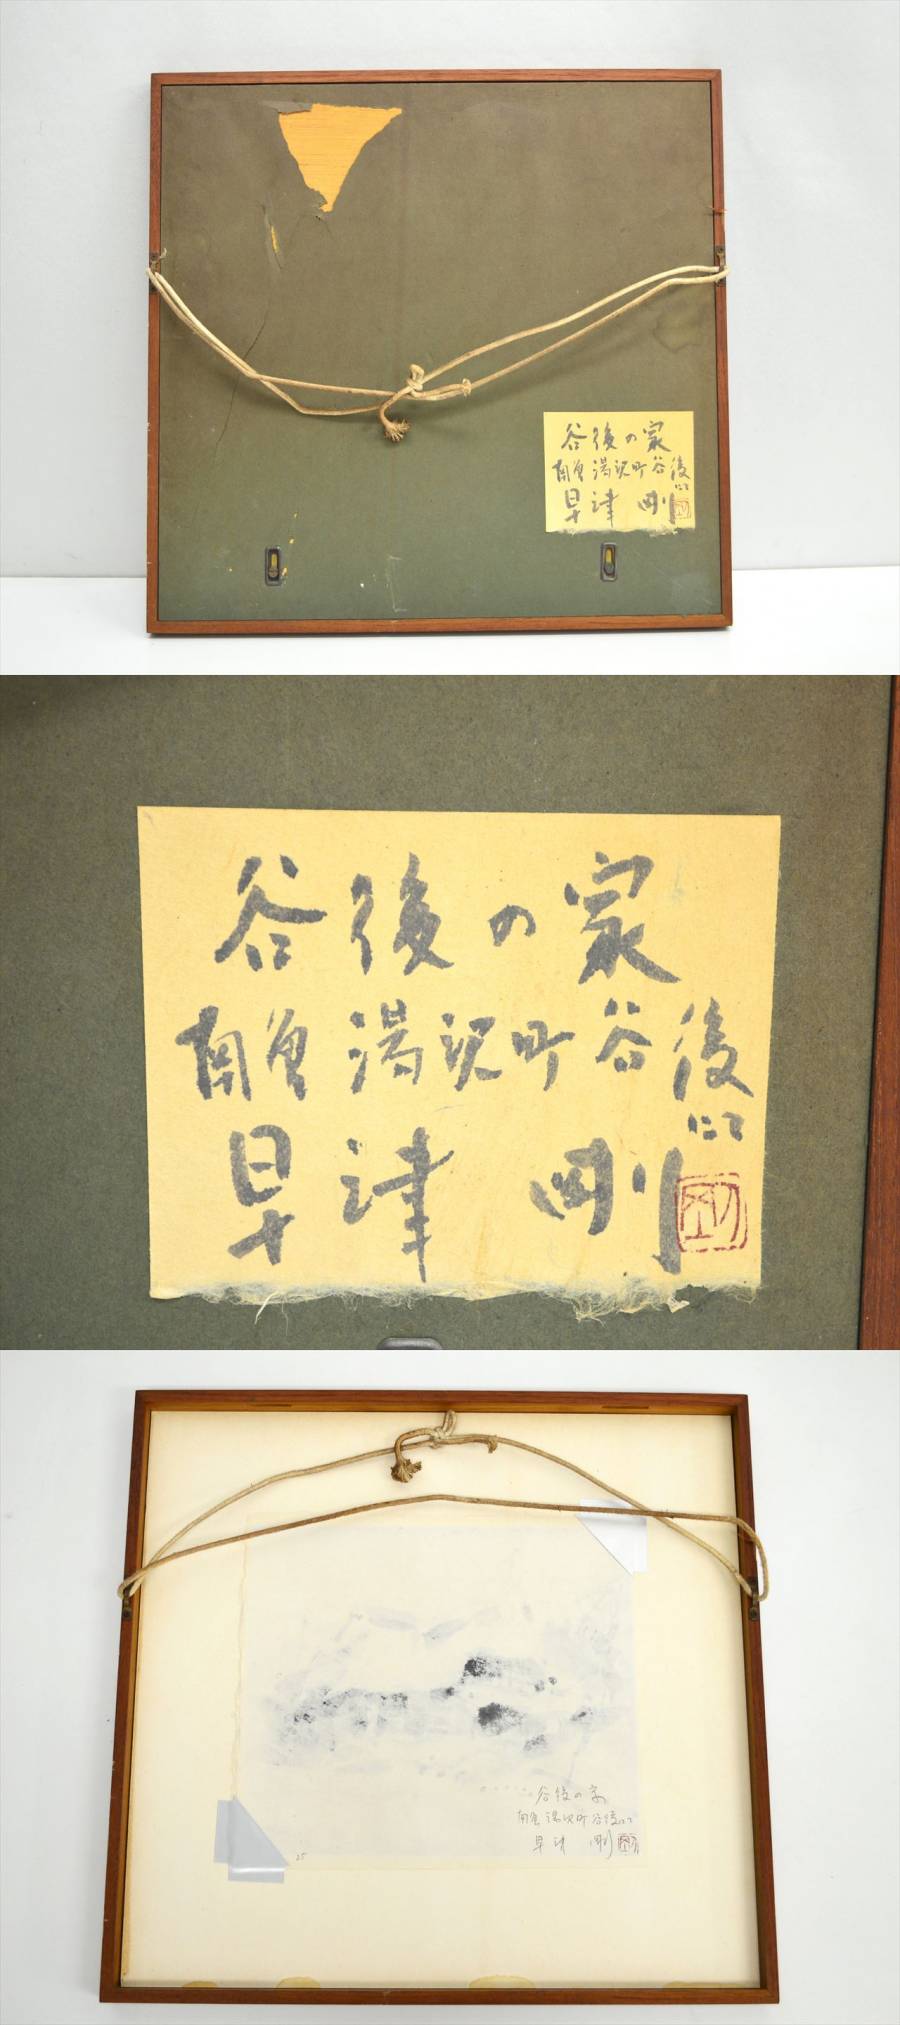 谷後の家
南會 湯沢町谷後
にて
早津 剛
剛
谷後の家
南會 湯沢町谷後にて
早津 剛
谷後の家
南會 湯沢町谷後にて
早津 剛
25